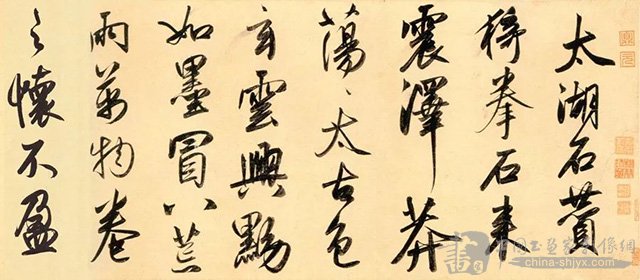 太湖石賛
猗拳石来
震澤莽
蕩、太古色
玄雲興黝
如墨冒八荒
雨萬物卷
之懷不盈
china-shjyx.com